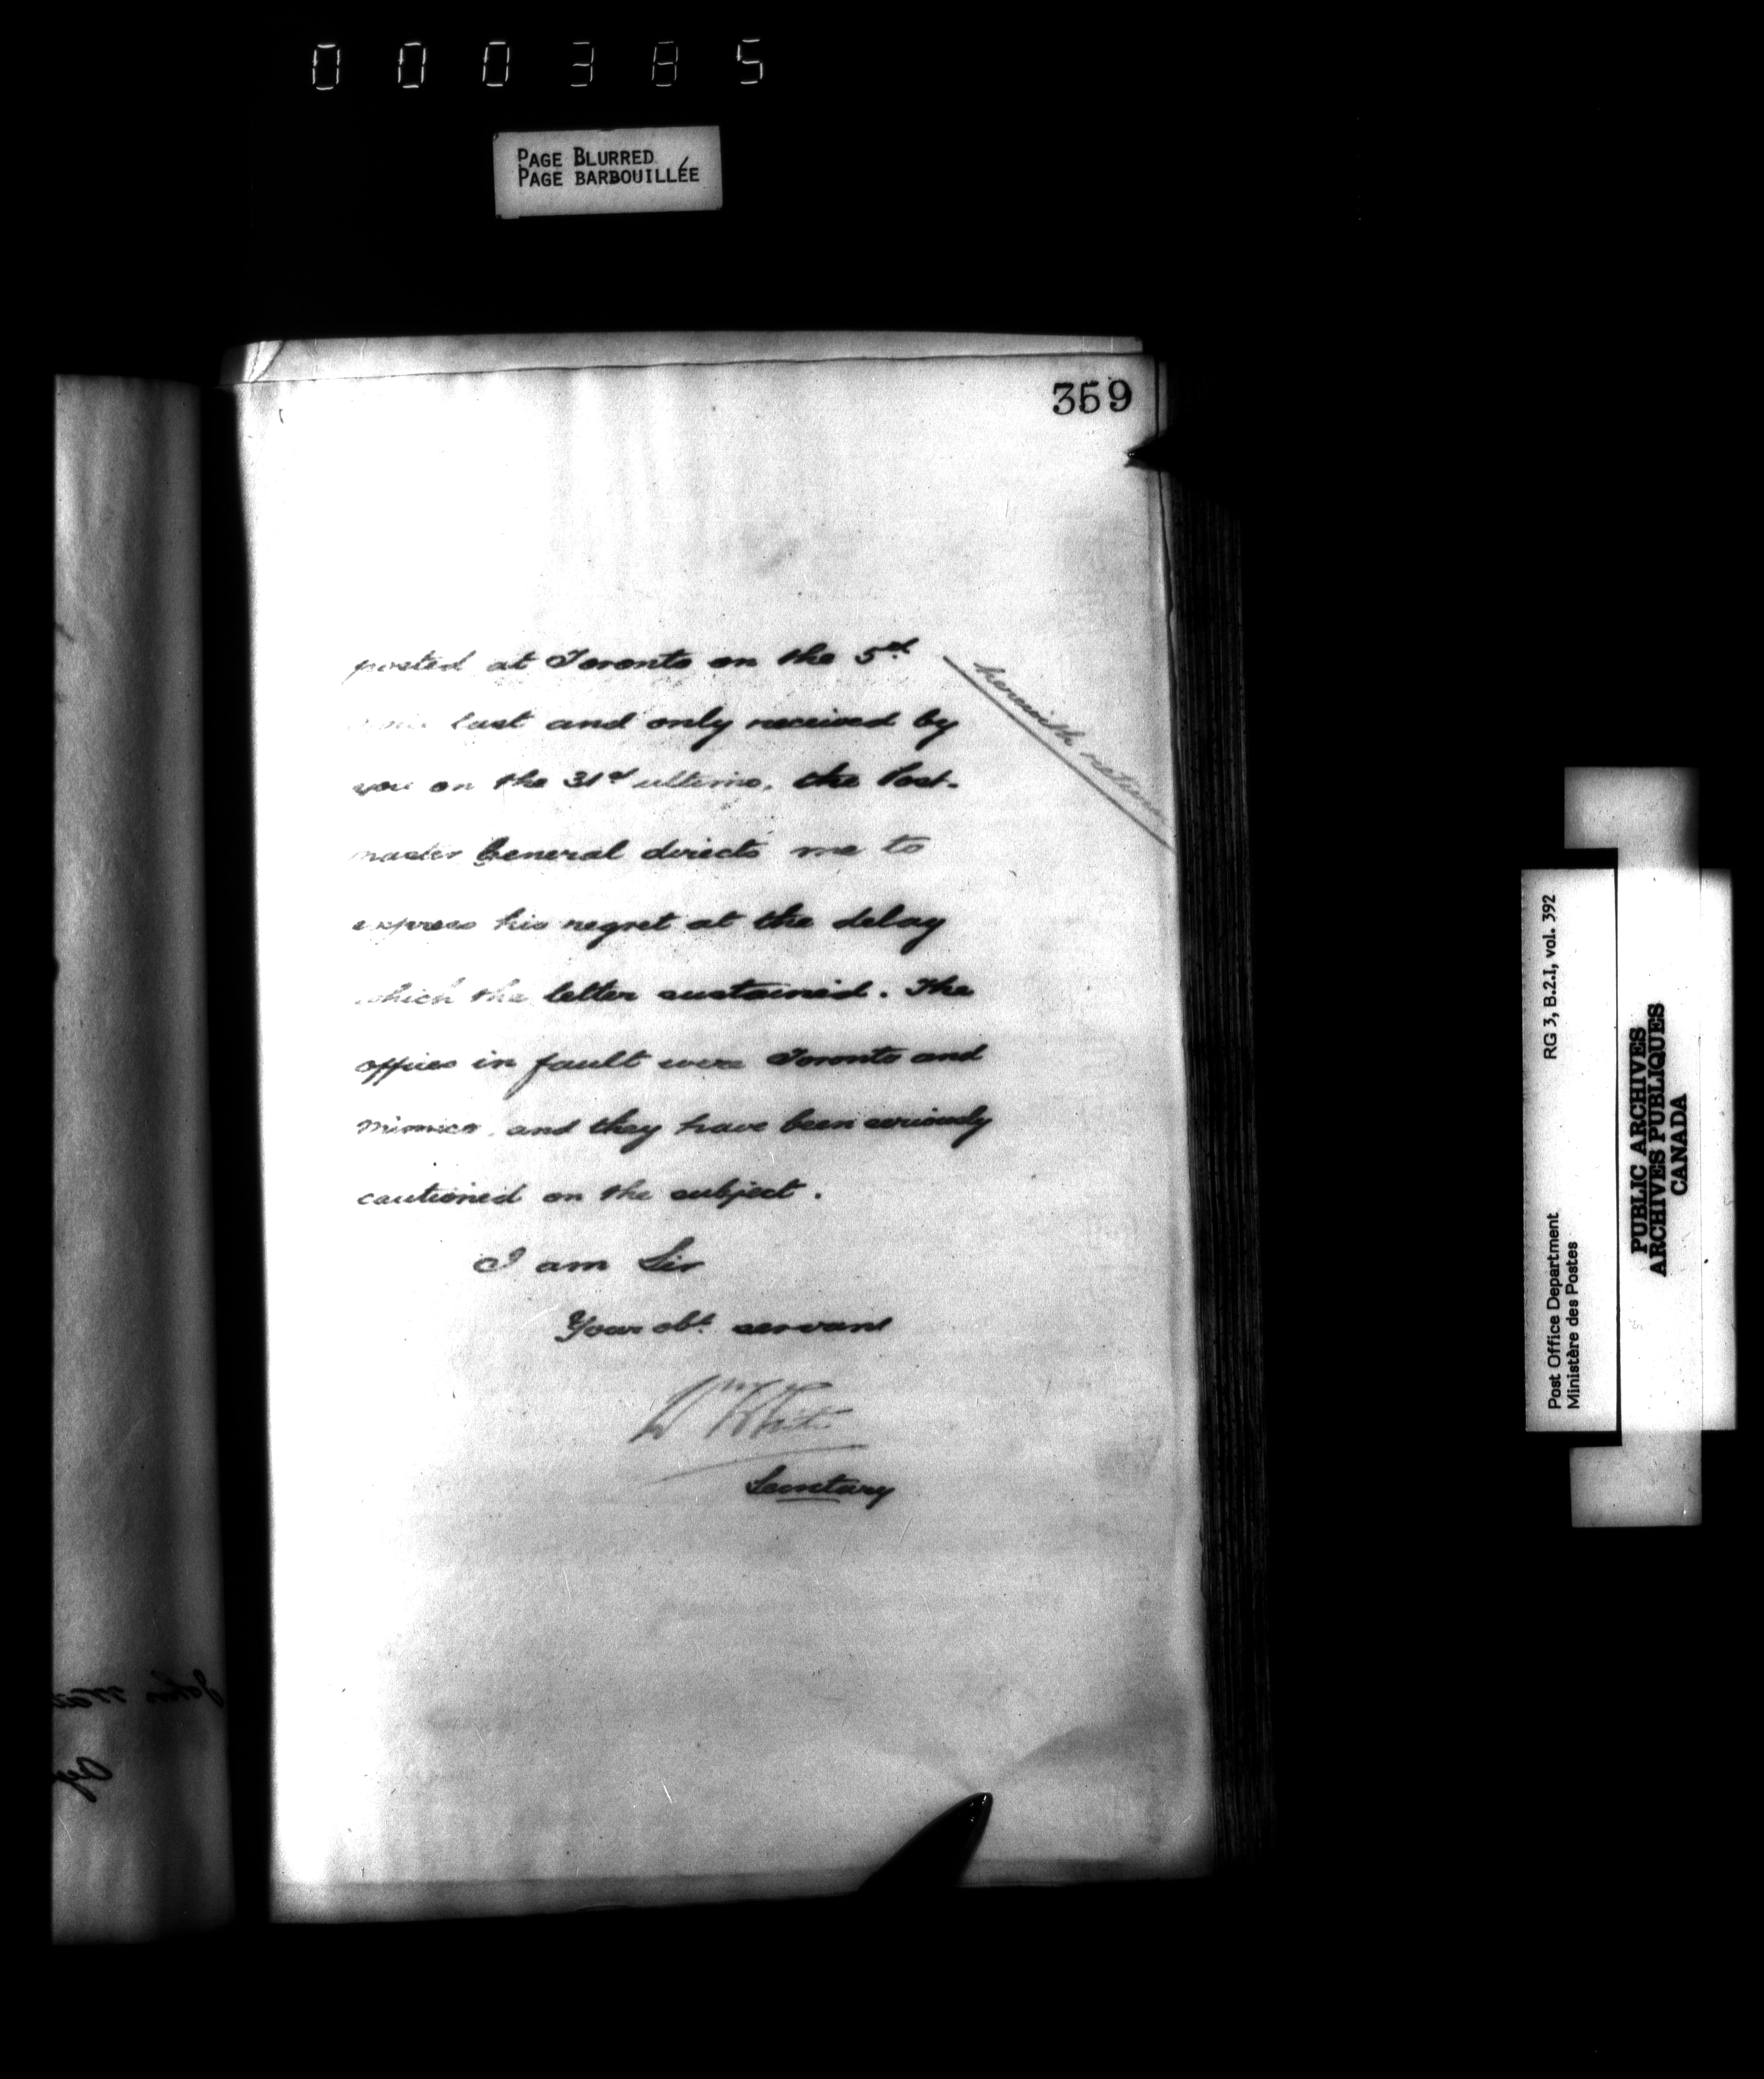 000385
PAGE BLURRED
PAGE BARBOUILLÉE
359
posted at Toronto on the 5th
last and only received by
you on the 31st ultimo, the Post-
master General directs me to
express his regret at the delay
which the letter sustained. The
offices in fault were Toronto and
Mimico, and they have been seriously
cautioned on the subject.
I am Sir
Your obt. servant
Wm White
Secretary
herewith
RG 3, B.2.1, vol. 392
Post Office Department
Ministère des Postes
PUBLIC ARCHIVES
ARCHIVES PUBLIQUES
CANADA